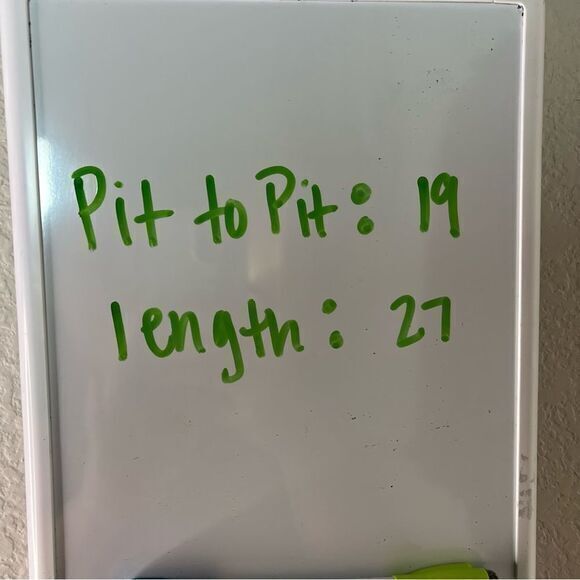 Pit to Pit: 19
length: 27